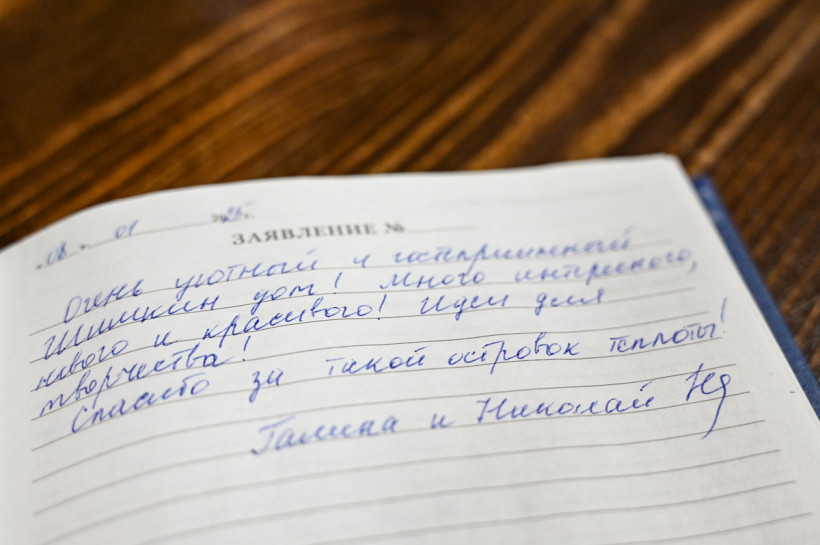 "08" 01 2025г.
ЗАЯВЛЕНИЕ №
Очень уютный и гостеприимный
Шишкин дом! Много интересного,
нового и красивого! Идеи для
творчества!
Спасибо за такой островок теплоты!
Галина и Николай